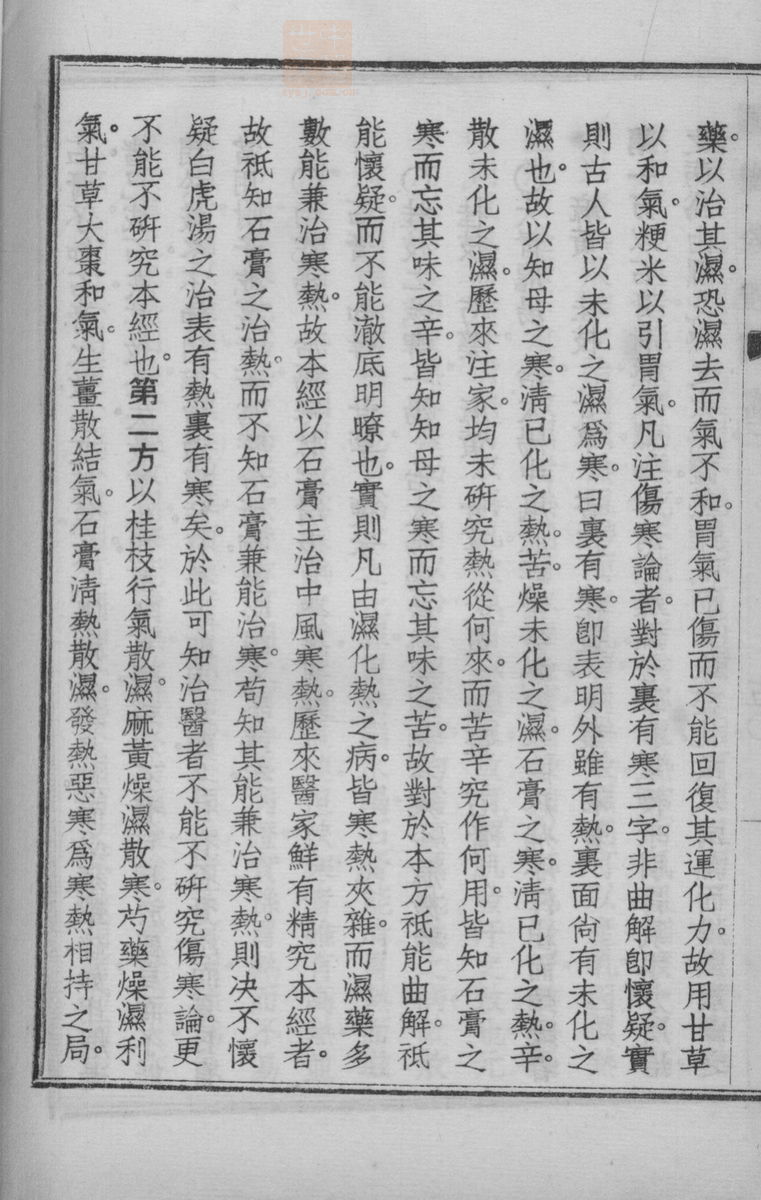 藥。以治其濕。恐濕去而氣不和。胃氣已傷而不能回復其運化力。故用甘草
以和氣。粳米以引胃氣。凡注傷寒論者。對於裏有寒三字。非曲解卽懷疑。實
則古人皆以未化之濕爲寒。曰裏有寒。卽表明外雖有熱。裏面尙有未化之
濕也。故以知母之寒。淸已化之熱。苦。燥未化之濕。石膏之寒。淸已化之熱。辛。
散未化之濕。歷來注家。均未硏究熱從何來。而苦辛究作何用。皆知石膏之
寒而忘其味之辛。皆知知母之寒而忘其味之苦。故對於本方祗能曲解。祗
能懷疑。而不能澈底明暸也。實則凡由濕化熱之病。皆寒熱夾雜。而濕藥多
數能兼治寒熱。故本經以石膏主治中風寒熱。歷來醫家鮮有精究本經者。
故祗知石膏之治熱。而不知石膏兼能治寒。苟知其能兼治寒熱。則決不懷
疑白虎湯之治表有熱裏有寒矣。於此可知治醫者不能不硏究傷寒論。更
不能不硏究本經也。第二方以桂枝行氣散濕。麻黃燥濕散寒。芍藥燥濕利
氣。甘草大棗和氣。生薑散結氣。石膏淸熱散濕。發熱惡寒爲寒熱相持之局。